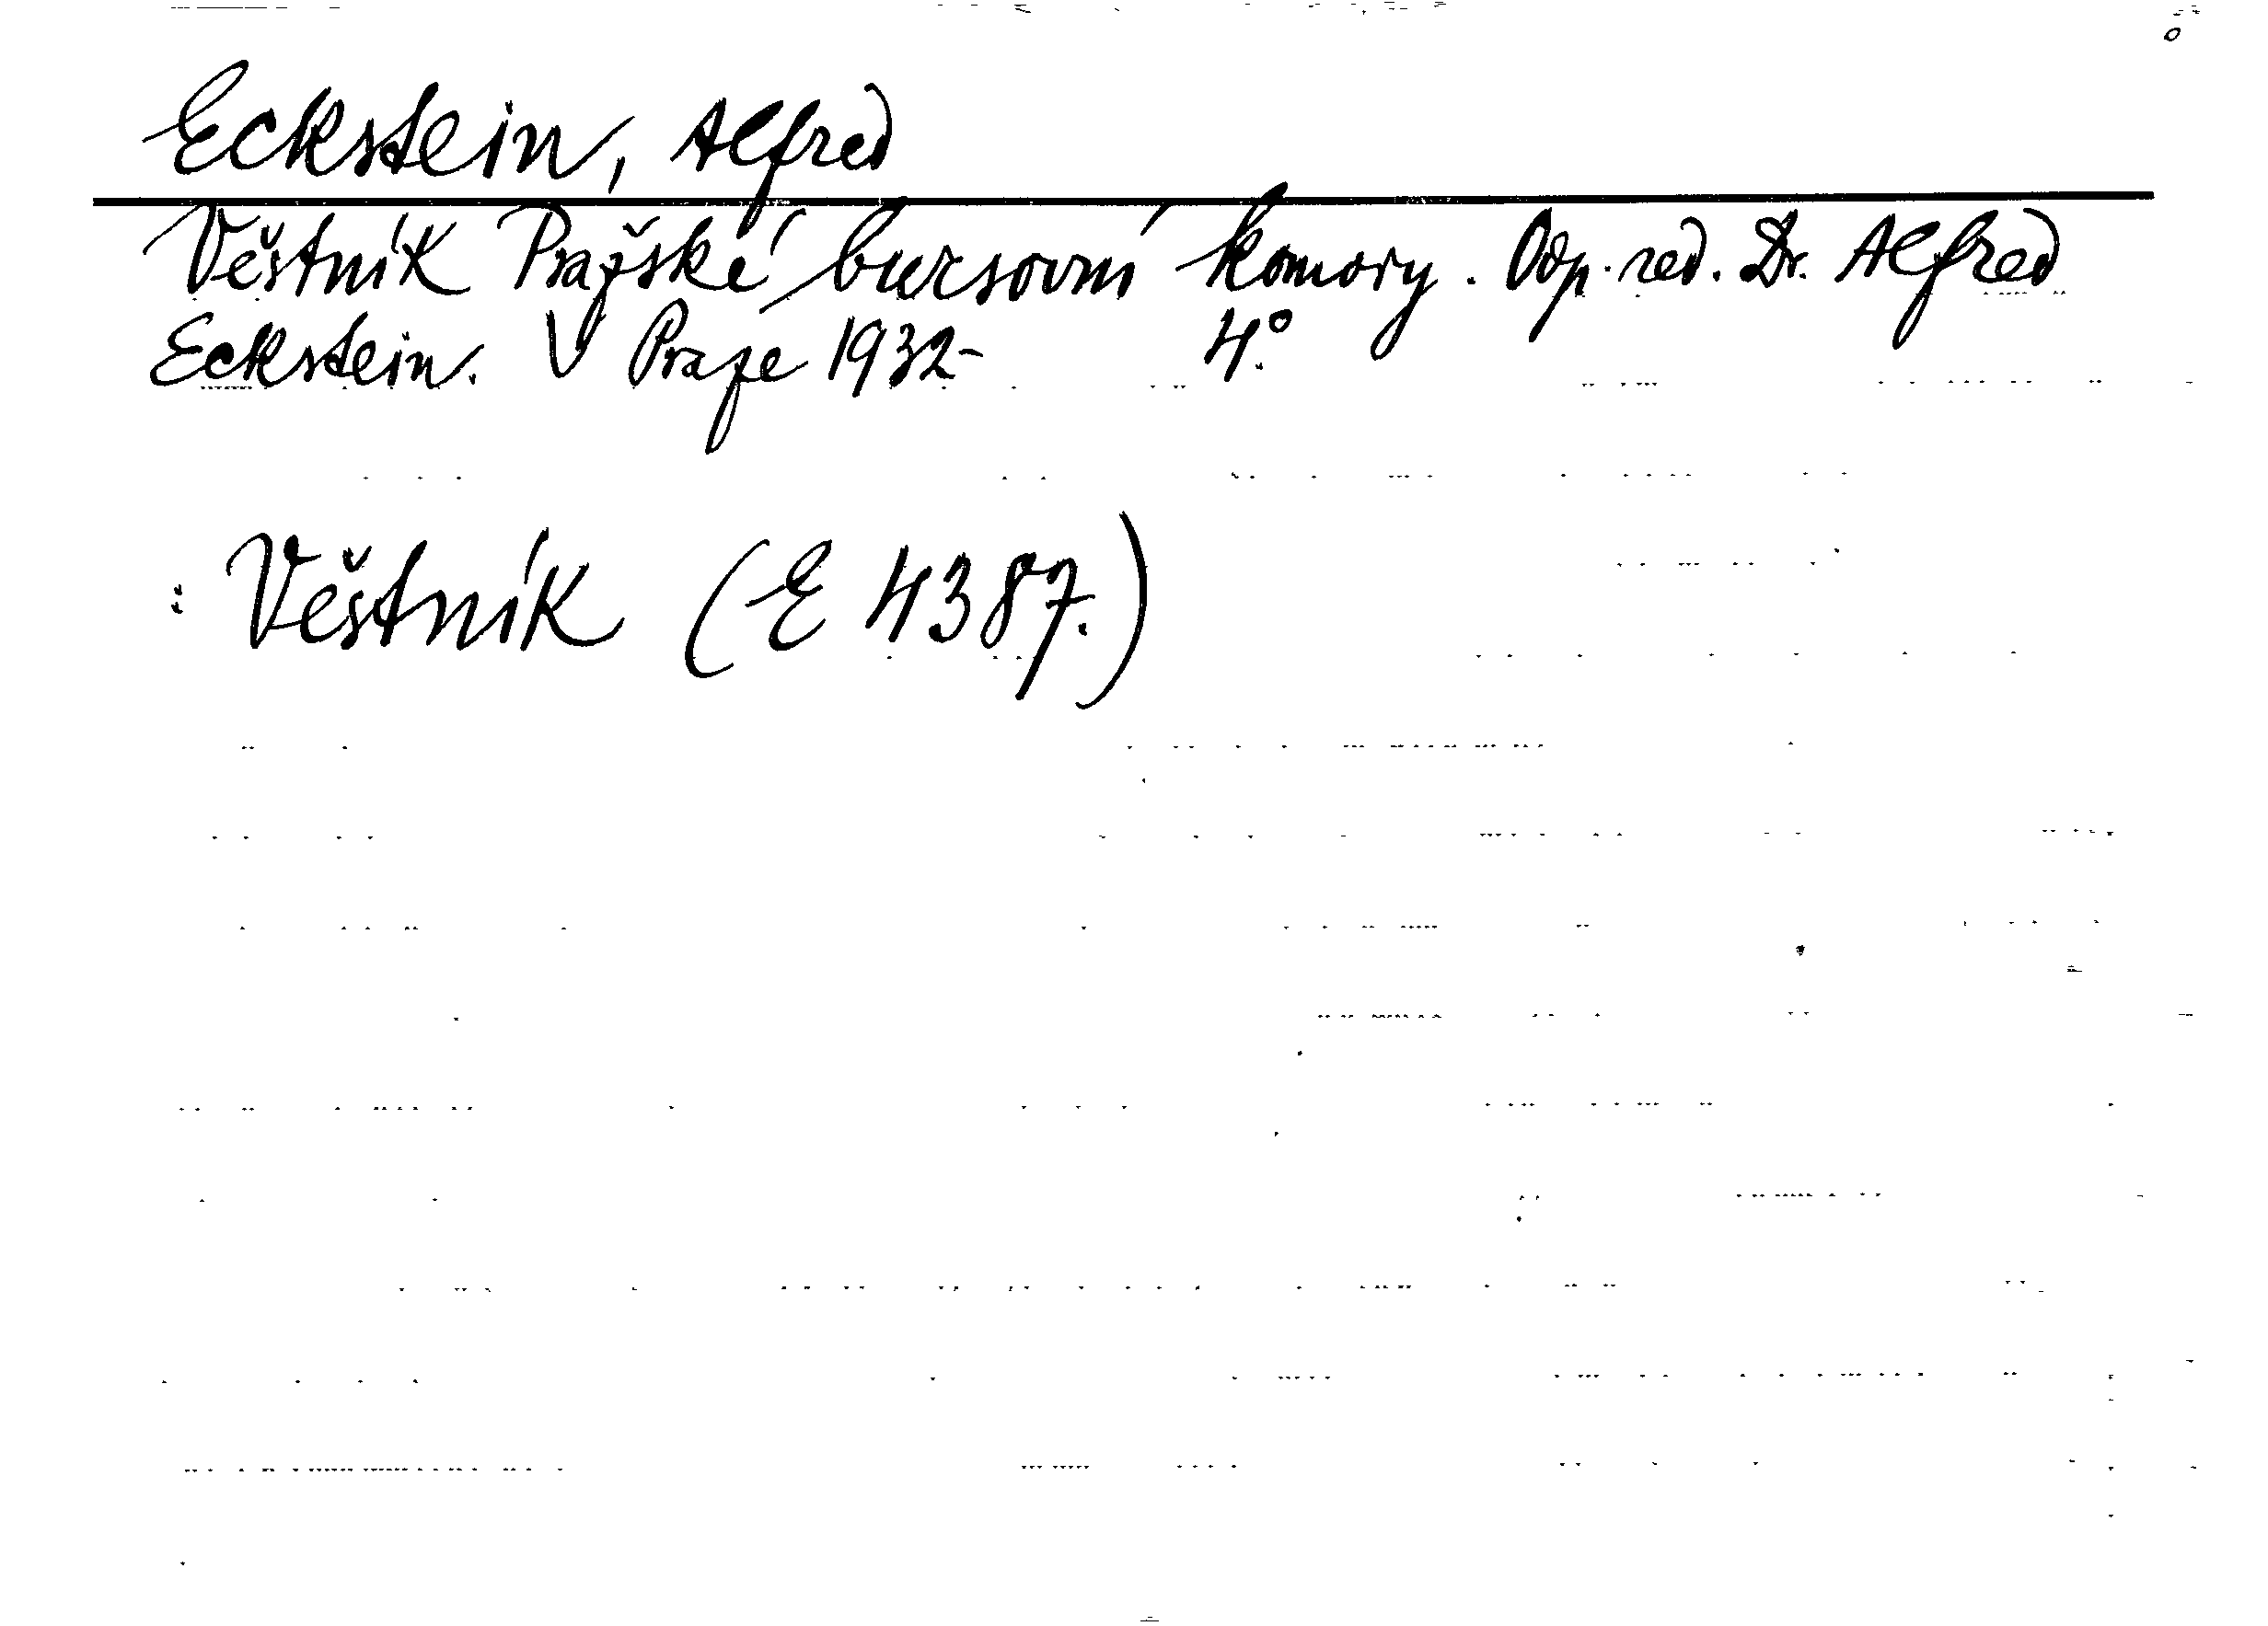 Eckstein, Alfred
Věstník Pražské bursovní komory. Odp. red. Dr. Alfred
Eckstein. V Praze 1932- 4.°
: Věstník (E 4387.)